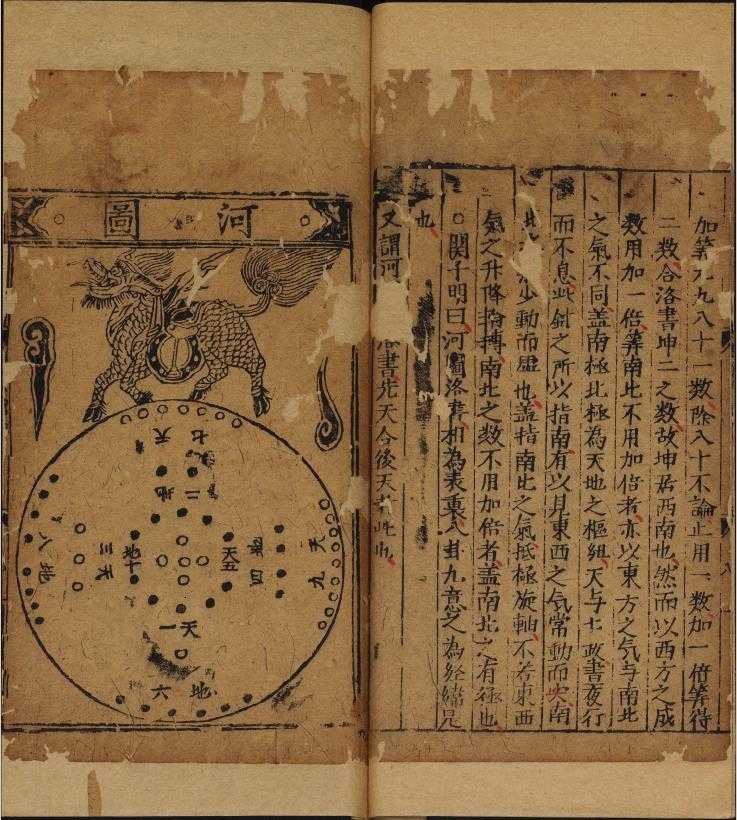 加筭九九八十一數除八十不論止用一數加一倍筭得
二數合洛書坤二之數故坤居西南也然而以西方之成
數用加一倍筭南北不用加倍者亦以東方之气与南北
之氣不同盖南極北極為天地之樞紐天与七政晝夜行
而不息此針之所以指南有以見東西之气常動而南
少動而虛也盖指南北之氣抵極旋軸不若東西
氣之升降南北之數不用加倍者盖南北之有極也
○関子明曰河圖洛書相為表裏八卦九為經緯是
也
又謂河洛書先天合後天此也
河圖
天七
地二
天九
地四
天五
地十
天三
地八
天一
地六